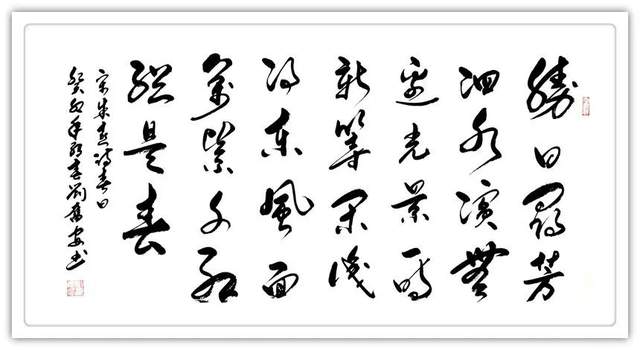 勝日尋芳
泗水濱無
邊光景一時
新等閑識
得東風面
萬紫千紅
總是春
宋朱熹詩春日
癸巳年初春劉安書